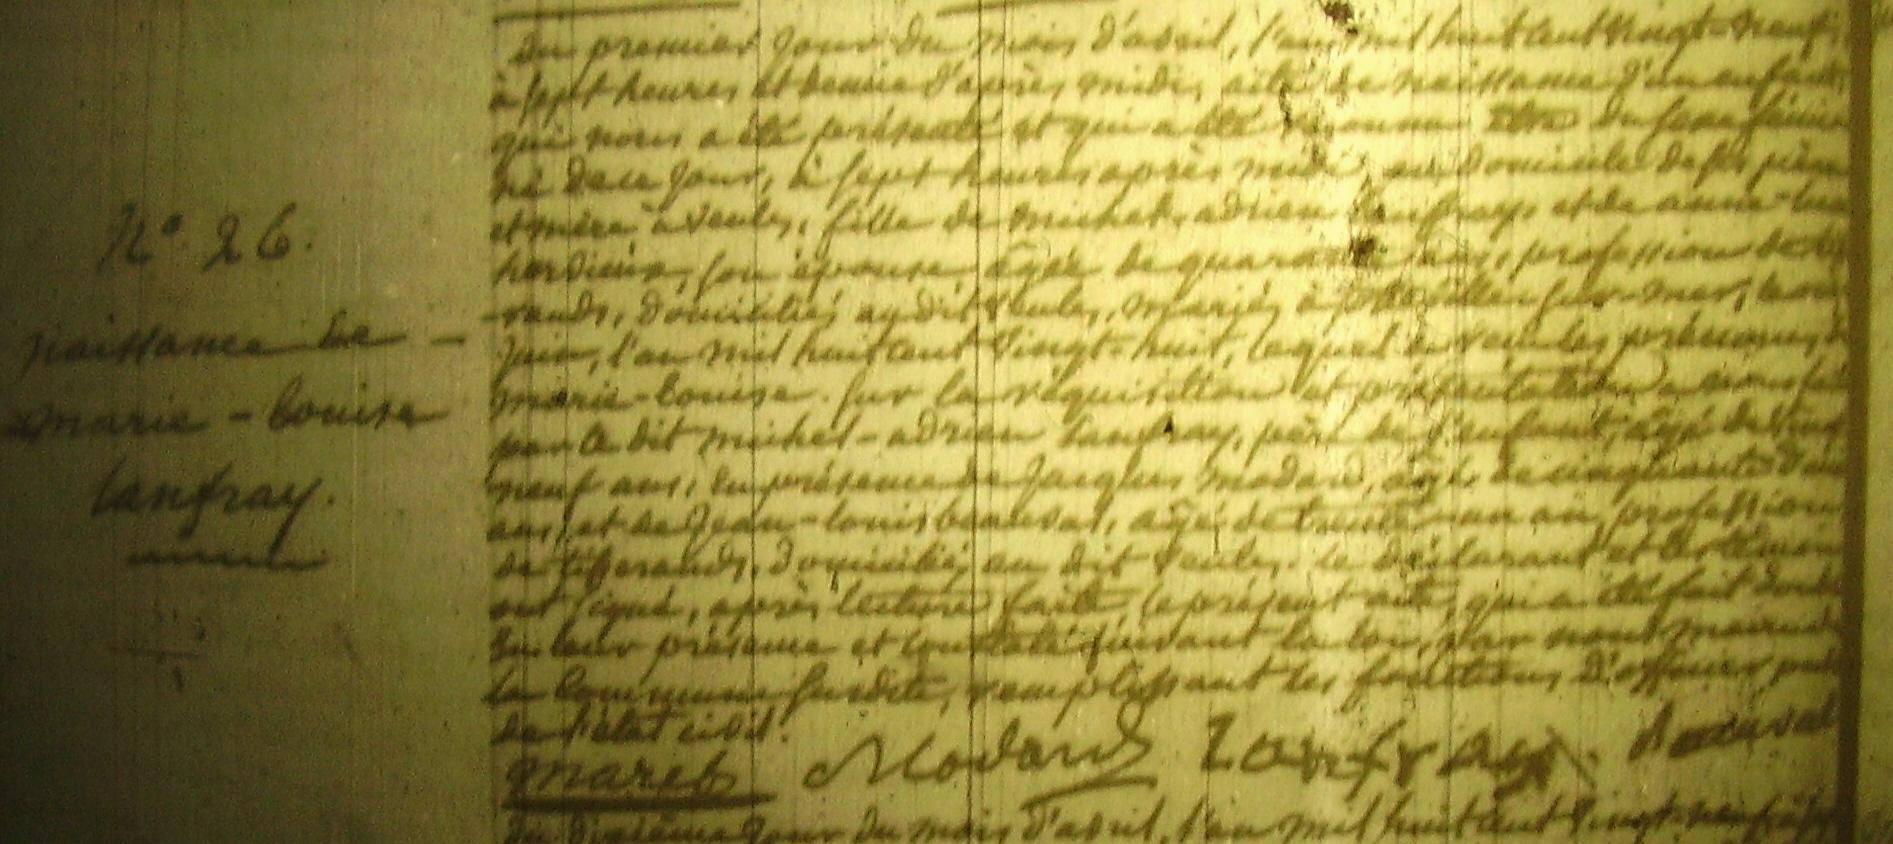 Du premier jour du mois d'avril, l'an mil huit cent vingt-neuf,
à sept heures et demie d'après midi, acte de naissance d'un enfant
qui nous a été présenté et qui a été reconnu être du sexe féminin
né de ce jour, à sept heures après midi, au domicile de ses père
N°. 26.
et mère à reules, fille de michel-adrien lanfray, et de anne-
son épouse âgée de quarante ans, profession de
rands, domiciliés au dit reules, mariés à sur-mer,
naissance de -
juin, l'an mil huit cent vingt-huit, lequel a reçu les prénoms, de
marie-louise
marie-louise. Sur la réquisition et présentation à nous faite
par le dit michel-adrien lanfray, père de l'enfant, âgé de vingt
lanfray.
neuf ans, En présence de jacques madard, âgé de cinquante
ans, et de jean-louis beauval, âgé de trente un ans, profession
de tisserands, domiciliés au dit reules. le déclarant et les témoins
ont signé, après lecture faite, le présent acte, qui a été fait double
En leur présence et constaté suivant la loi, par nous maire de
la commune susdite, remplissant les fonctions d'officier public
de l'état civil.
maret Modard Lanfray. beauval
Du dixième jour du mois d'avril, l'an mil huit cent vingt-neuf,